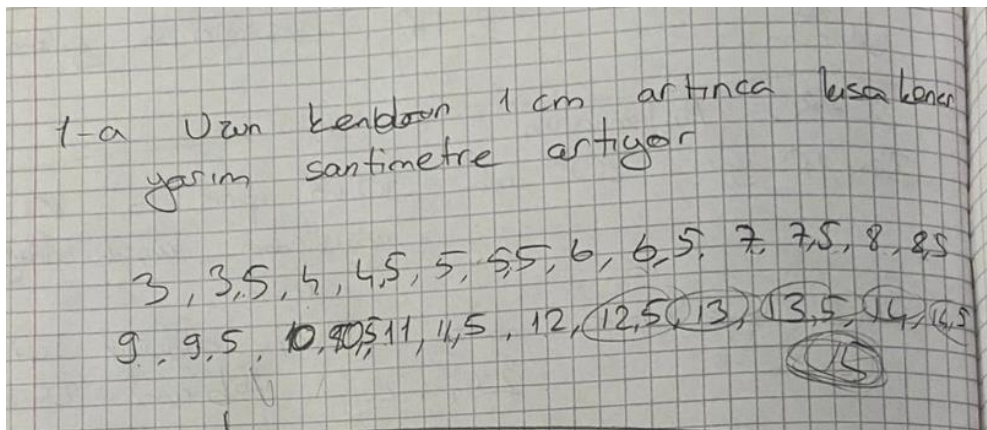 1-a Uzun kenardan 1 cm artınca kısa kenar
yarım santimetre artıyor
3, 3,5, 4, 4,5, 5, 5,5, 6, 6,5, 7, 7,5, 8, 8,5
9, 9,5, 10, 10,5, 11, 11,5, 12, 12,5, 13, 13,5, 14, 14,5
15